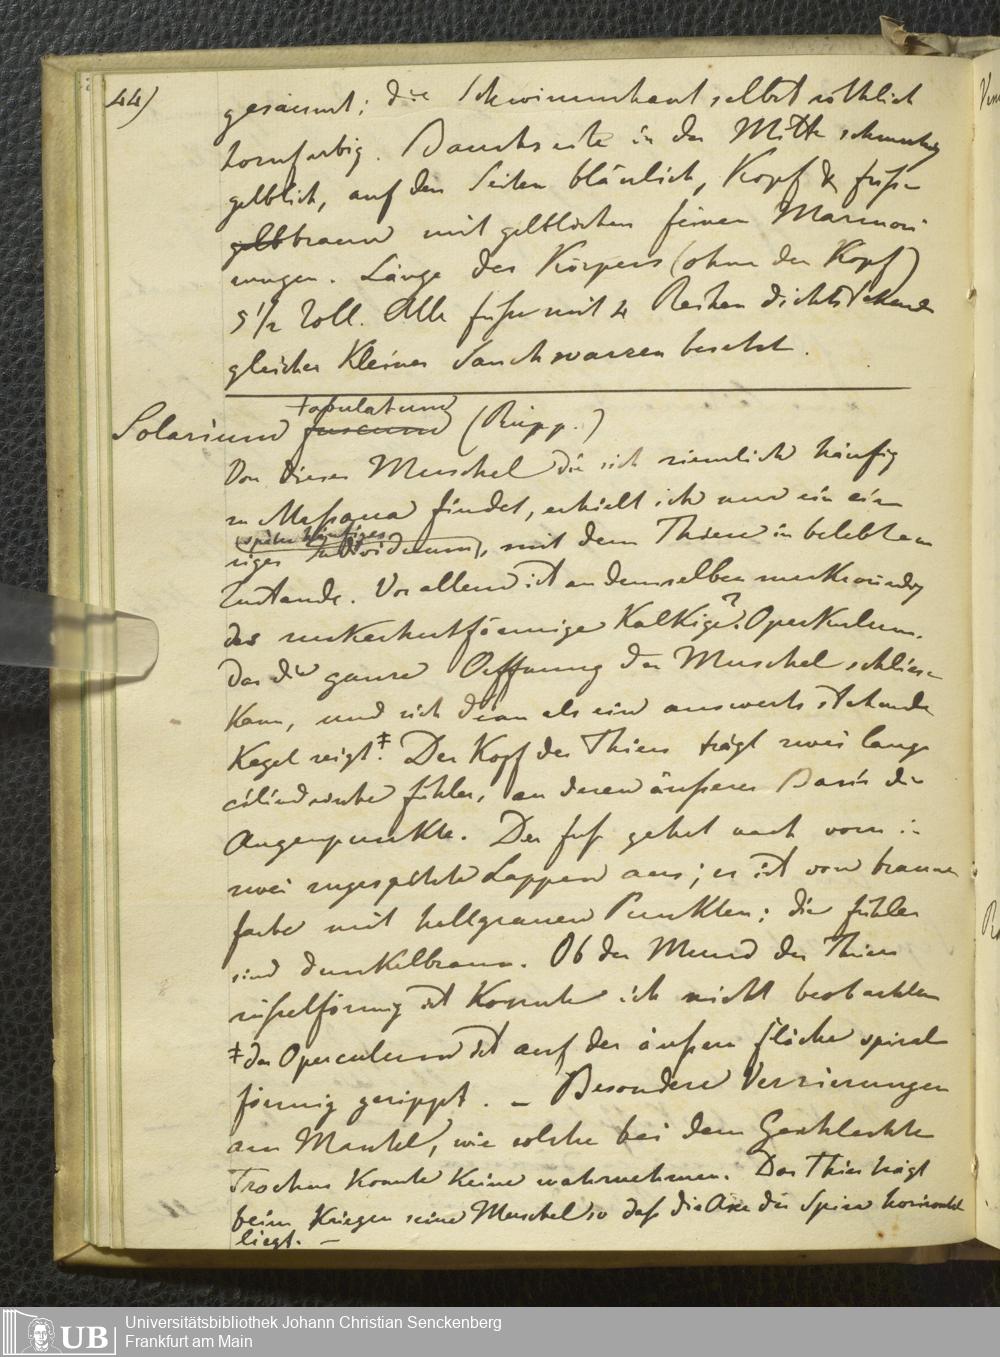 44)
gesäumt; die Schwimmhaut selbst röthlich
hornfarbig. Bauchseite in der Mitte schmutzig
gelblich, auf den Seiten bläulich, Kopf & Füße
gelbbraun mit gelblichen feinen Marmori
rungen. Länge des Körpers (ohne den Kopf)
5 1/2 Zoll. Alle Füße mit 4 Reihen dichtstehender
gleicher kleiner Saugwarzen besetzt.
tabulatum
Solarium fuscum (Rüpp.)
Von dieser Muschel die sich ziemlich häufig
zu Massaua findet, erhielt ich nur ein ein
(später häufiger
ziges Individuum), mit dem Thiere in belebtem
Zustande. Vor allem ist an demselben merkwürdig
das zuckerhutförmige kalkige? Operkulum.
Das die ganze Oeffnung der Muschel schliesen
kann, und sich dann als ein auswerts stehender
Kegel zeigt.‡ Der Kopf des Thiers trägt zwei lange
cilindrische Fühler, an deren äußerer Basis die
Augenpunkte. Der Fuß gehet nach vorn in
zwei zugespitzte Lappen aus; er ist von brauner
Farbe mit hellgrauen Punkten; die Fühler
sind dunkelbraun. Ob der Mund des Thiers
rüßelförmig ist konnte ich nicht beobachten
‡ das Operculum ist auf der äußern Fläche spiral
förmig gerippt. – Besondere Verzierungen
am Mantel, wie solche bei dem Geschlechte
Trochus konnte keine wahrnehmen. Das Thier trägt
beim Kriegen seine Muschel so daß die Axe der Spira horizontal
liegt. –
Universitätsbibliothek Johann Christian Senckenberg
Frankfurt am Main
UB